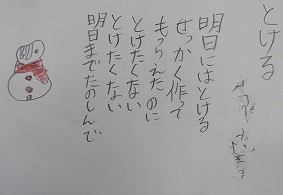 とける
明日にはとける
せっかく作って
もらえたのに
とけたくない
とけたくない
明日までたのしんで